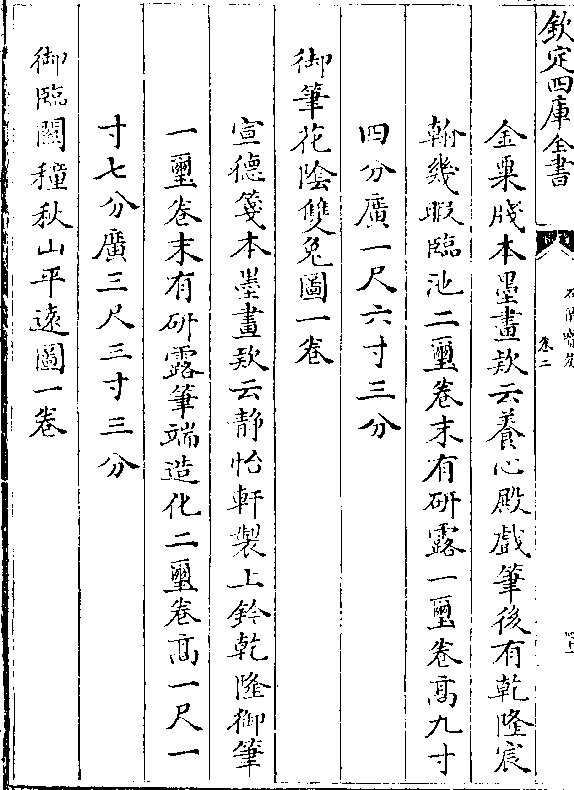 欽定四庫全書
卷二
金粟牋本墨畫款云養心殿戲筆後有乾隆宸
翰幾暇臨池二璽卷末有研露一璽卷高九寸
四分廣一尺六寸三分
御筆花陰雙兔圖一卷
宣德箋本墨畫款云静怡軒製上鈐乾隆御筆
一璽卷末有研露筆端造化二璽卷高一尺一
寸七分廣三尺三寸三分
御臨關穜秋山平遠圖一卷